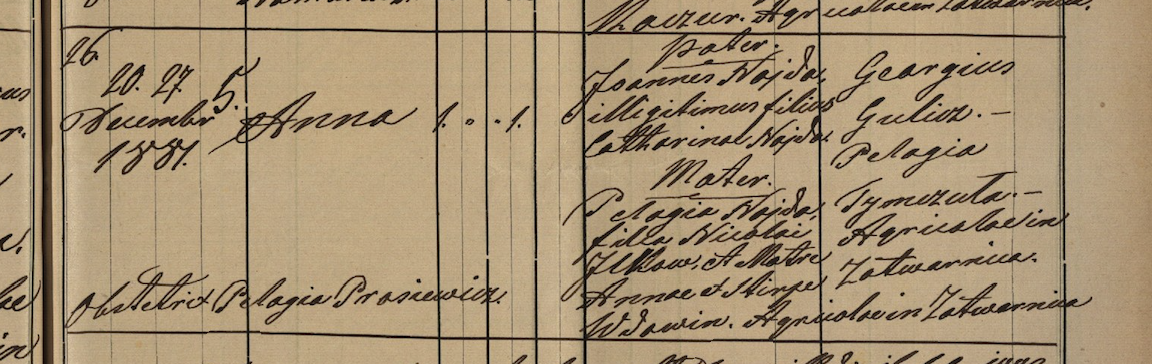 Maczur. Agricolae in Zatwarnica.
26.
20. 27 5.
Decembr
1881.
Anna
1. " " 1.
pater.
Joannes Hojda,
illigitimus filius
Catharinae Hojda.
Mater.
Pelagia Hojda,
filia Nicolai
Ilkow, et Matre
Annae et Stirpe
Wdowin. Agricolae in Zatwarnica
Georgius
Gulicz. –
Pelagia
Tymczuta. –
Agricolae in
Zatwarnica.
Obstetrix Pelagia Prosiewicz.